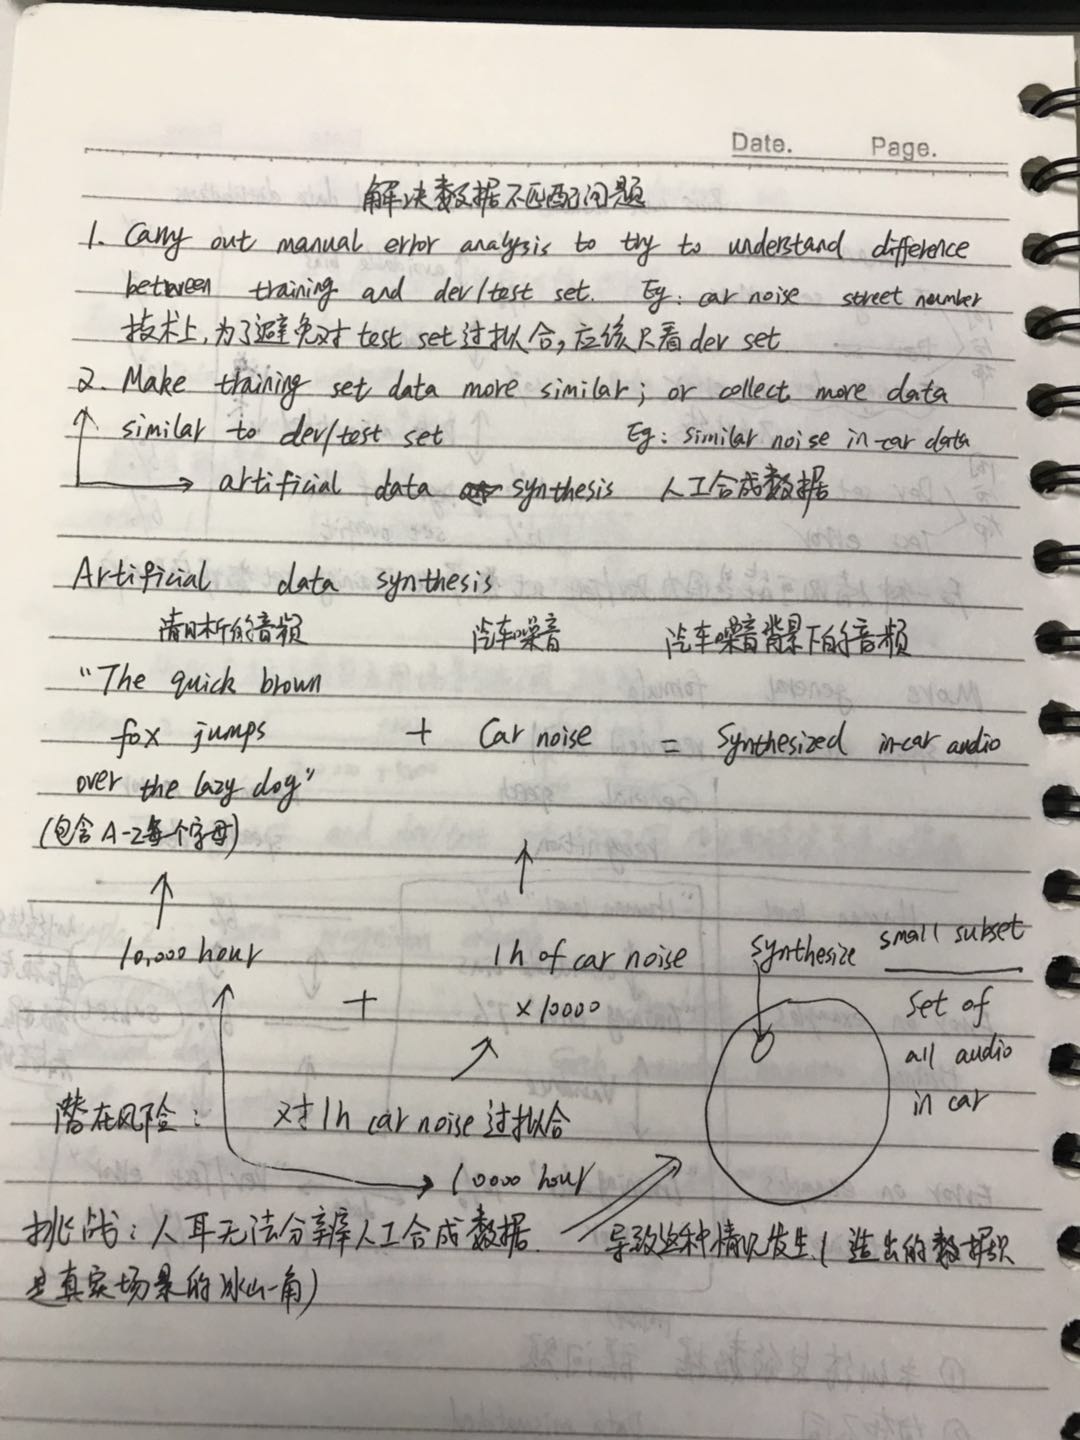 Date. Page.
解决数据不匹配问题
1. Carry out manual error analysis to try to understand difference
between training and dev/test set. Eg: car noise street number
技术上,为了避免对 test set 过拟合,应该只看 dev set
2. Make training set data more similar; or collect more data
similar to dev/test set Eg: similar noise in-car data
artificial data synthesis 人工合成数据
Artificial data synthesis
清晰的音频 汽车噪音 汽车噪音背景下的音频
"The quick brown
fox jumps + Car noise = Synthesized in-car audio
over the lazy dog"
(包含A-Z每个字母)
10,000 hour 1h of car noise synthesize small subset
+ ×10000 set of
all audio
in car
潜在风险: 对1h car noise过拟合
10000 hour
挑战:人耳无法分辨人工合成数据. 导致这种情况发生(造出的数据只
是真实场景的冰山一角)